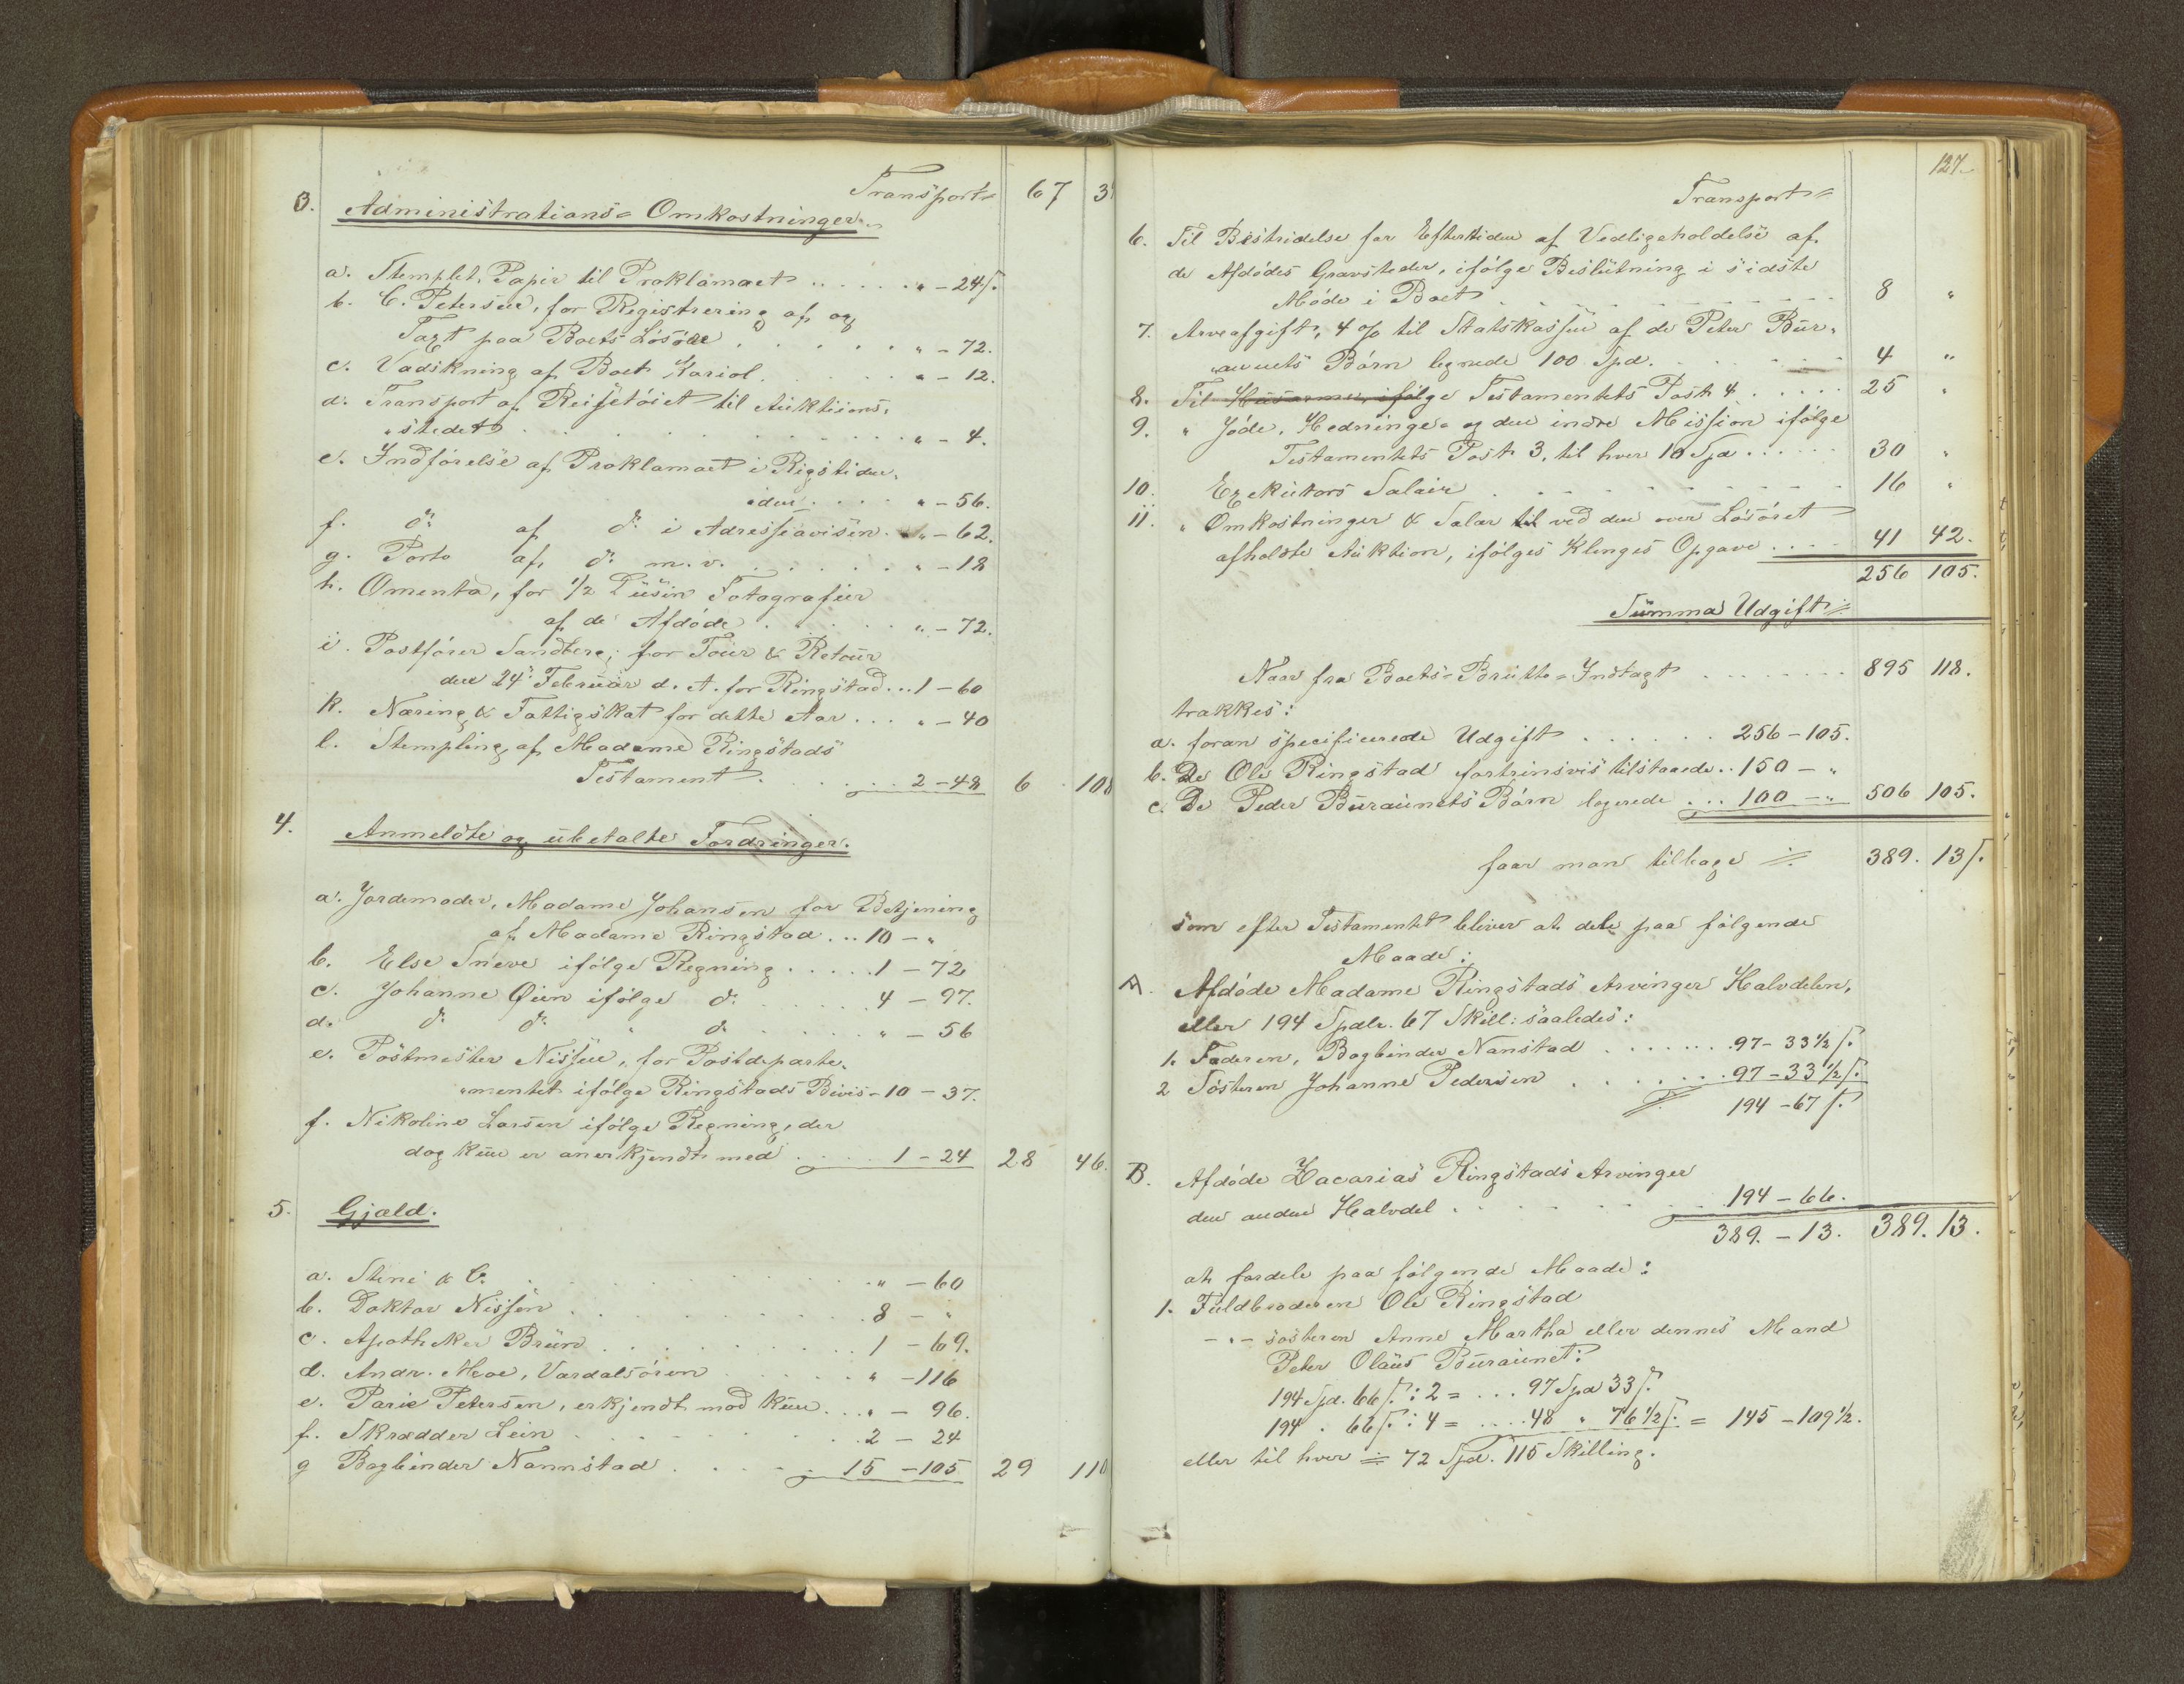 Transport
67 3
3. Administrations-Omkostninger.
a. Stemplet Papir til Proklamaet ...... " - 24 s.
b. C. Petersen, for Registrering af og
Taxt paa Boets Løsøre ...... " - 72.
c. Vadskning af Boets Kariol ...... " - 12.
d. Transport af Reisetøiet til Auktions-
"stedet ...... " - 4.
e. Indførelse af Proklamaet i Rigstiden-
"den .... " - 56.
f. do af do i Adresseavisen. " - 62.
g. Porto af do m.v. ...... " - 18
h. Omenta, for 1/2 Dusin Fotografier
af de Afdøde ...... " - 72.
i. Postfører Sandberg, for Tour & Retour
den 24. Februar d. A. for Ringstad... 1 - 60
k. Næring & Fattigskat for dette Aar... " - 40
l. Stempling af Madame Ringstads
Testament ...... 2 - 48 6 108
4. Anmeldte og ubetalte Fordringer.
a. Jordemoder, Madame Johansen for Betjening
af Madame Ringstad... 10 - "
b. Else Sneve ifølge Regning ..... 1 - 72
c. Johanne Øien ifølge do ..... 4 - 97.
d. do do " do ..... " - 56
e. Postmester Nissen, for Postdeparte-
"mentet ifølge Ringstads Bevis - 10 - 37.
f. Nikoline Larsen ifølge Regning, der
dog kun er anerkjendt med .... 1 - 24 28 46.
5. Gjæld.
a. Stene & C. ...... " - 60
b. Doktor Nissen ...... 8 - "
c. Apotheker Brun ...... 1 - 69.
d. Andr. Moe, Værdalsøren ...... " - 116
e. Parie Petersen, erkjendt med kun ... " - 96.
f. Skrædder Lein ...... 2 - 24
g Bogbinder Nannstad ...... 15 - 105 29 110
127.
Transport
6. Til Bestridelse for Eftertiden af Vedligeholdelse af
de Afdødes Gravsteder, ifølge Beslutning i sidste
Møde i Boet ...... 8 "
7. Arveafgift, 4 % til Statskassen af de Peter Bur-
"aunets Børn legerede 100 Spd. ...... 4 "
8. Til Husarme, ifølge Testamentets Post 4 ..... 25 "
9. " Jøde, Hedninge- og den indre Mission ifølge
Testamentets Post 3, til hver 10 Spd ...... 30 "
10. Exekutors Salair ...... 16 "
11. " Omkostninger & Salær til ved den over Løsøret
afholdte Auktion, ifølges Klinges Opgave .... 41 42.
256 105.
Summa Udgift
Naar fra Boets-Brutto-Indtægt ...... 895 118.
trækkes:
a. foran specificerede Udgift ...... 256 - 105.
b. De Ole Ringstad fortrinsvis tilstaaede .. 150 - "
c. De Peder Buraunets Børn legerede ... 100 - " 506 105.
faar man tilbage 389. 13 s.
som efter Testamentet bliver at dele paa følgende
Maade:
A. Afdøde Madame Ringstads Arvinger Halvdelen,
eller 194 Spdlr. 67 Skill: saaledes:
1. Faderen, Bogbinder Nanstad ...... 97 - 33 1/2 s.
2 Søsteren Johanne Pedersen ...... 97 - 33 1/2 s.
194 - 67 s.
B. Afdøde Zacarias Ringstads Arvinger
den anden Halvdel ...... 194 - 66.
389. - 13. 389. 13.
at fordele paa følgende Maade:
1. Fuldbroderen Ole Ringstad
- " - søsteren Anne Martha eller dennes Mand
Peter Olaus Buraunet:
194 Spd. 66 s. : 2 = ... 97 Spd 33 s.
194 " 66 s. : 4 = .... 48 " 76 1/2 s. = 145 - 109 1/2.
eller til hver 72 Spd. 115 Skilling.